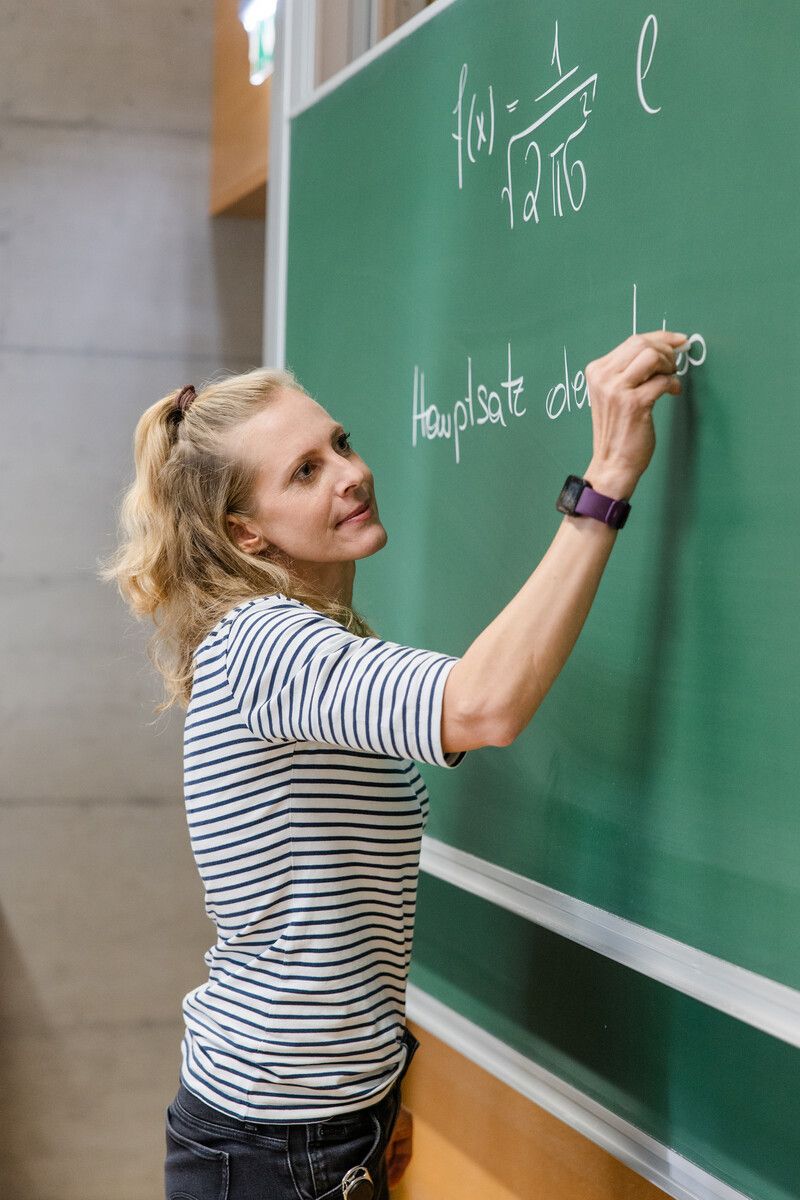 f(x) = 1/√(2πσ²) e
Hauptsatz der